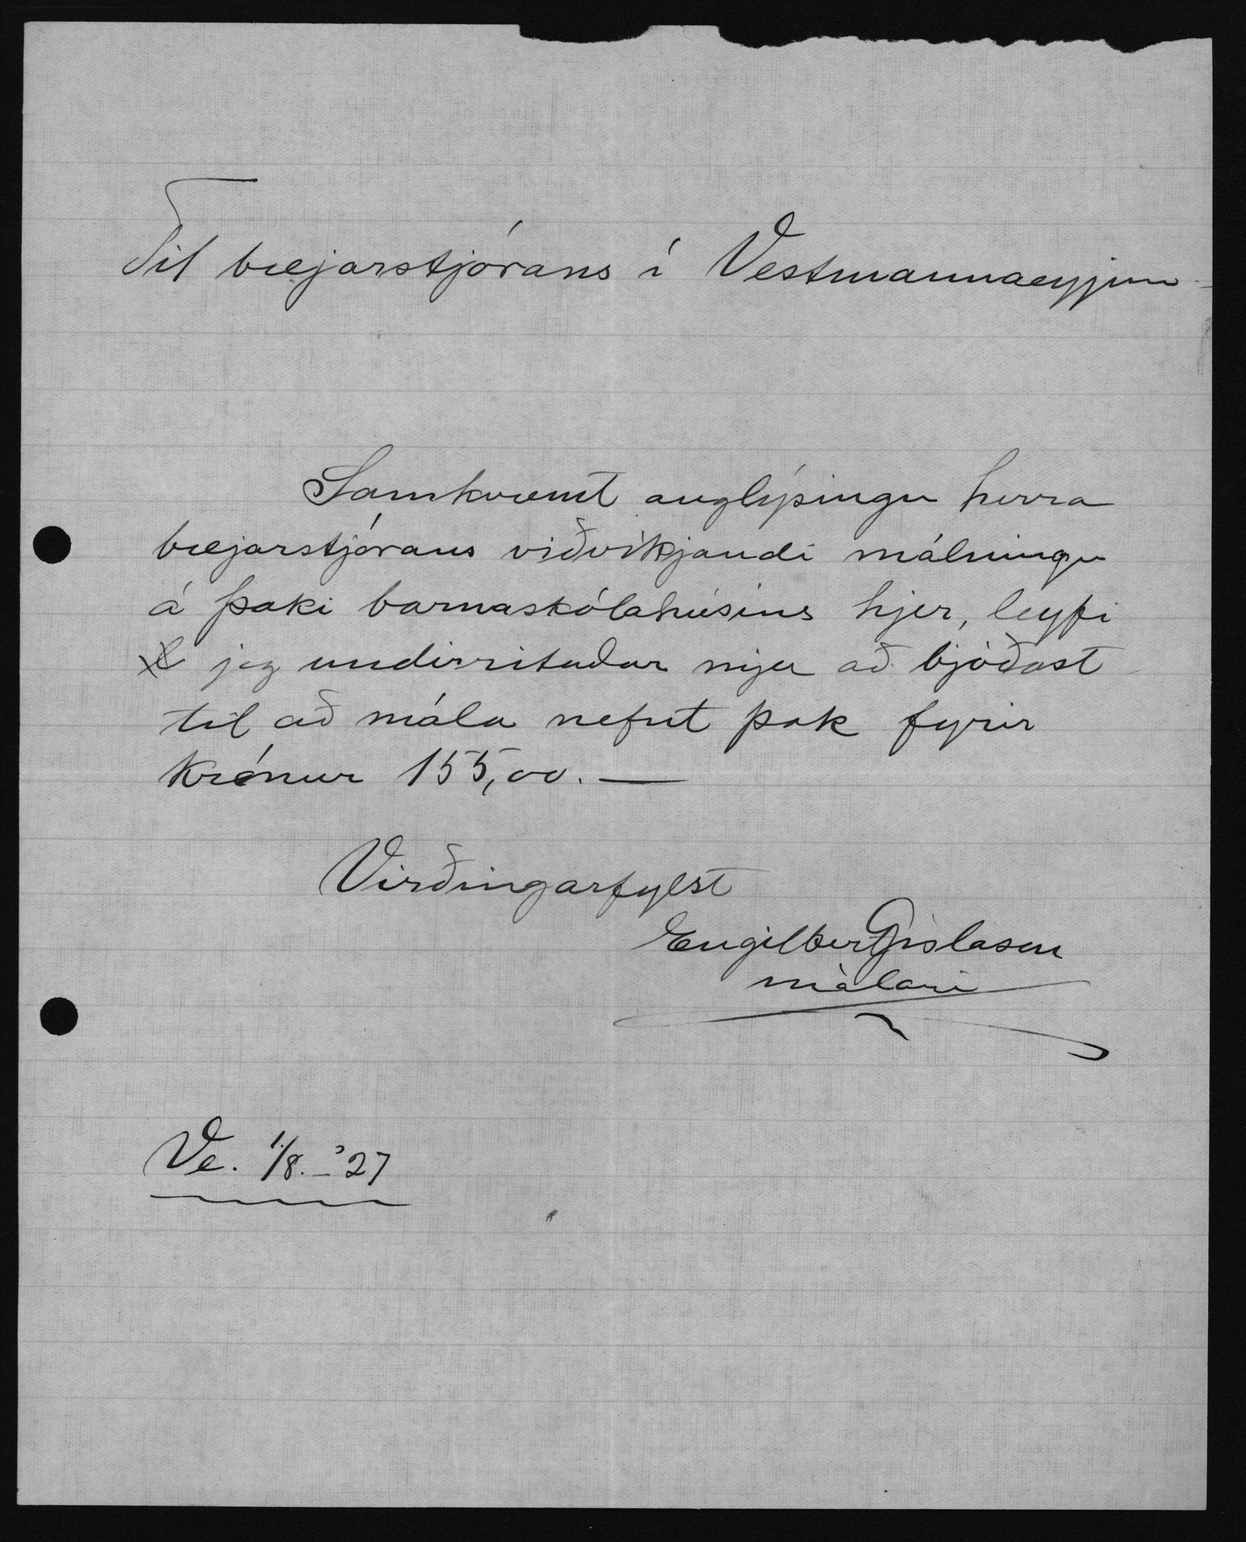 Til bæjarstjórans í Vestmannaeyjum
Samkvæmt auglýsingu herra
bæjarstjórans viðvíkjandi málningu
á þaki barnaskólahúsins hjer, leyfi
jeg undirritaður mjer að bjóðast
til að mála nefnt þak fyrir
krónur 155,00. —
Virðingarfylst
Engilbert Gíslason
málari
Ve. 1/8. - '27